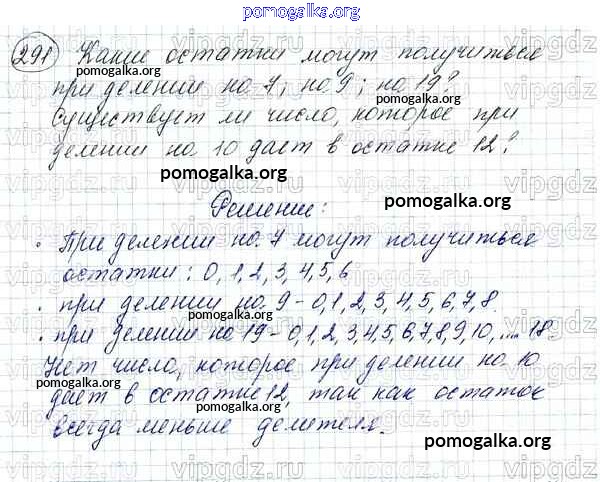 pomogalka.org
291 Какие остатки могут получиться
при делении на 7; на 9; на 19?
Существует ли число, которое при
делении на 10 дает в остатке 12?
Решение:
· При делении на 7 могут получиться
остатки: 0, 1, 2, 3, 4, 5, 6
· при делении на 9 - 0, 1, 2, 3, 4, 5, 6, 7, 8.
· при делении на 19 - 0, 1, 2, 3, 4, 5, 6, 7, 8, 9, 10, ... 18
Нет числа, которое при делении на 10
дает в остатке 12, так как остаток
всегда меньше делителя.
pomogalka.org